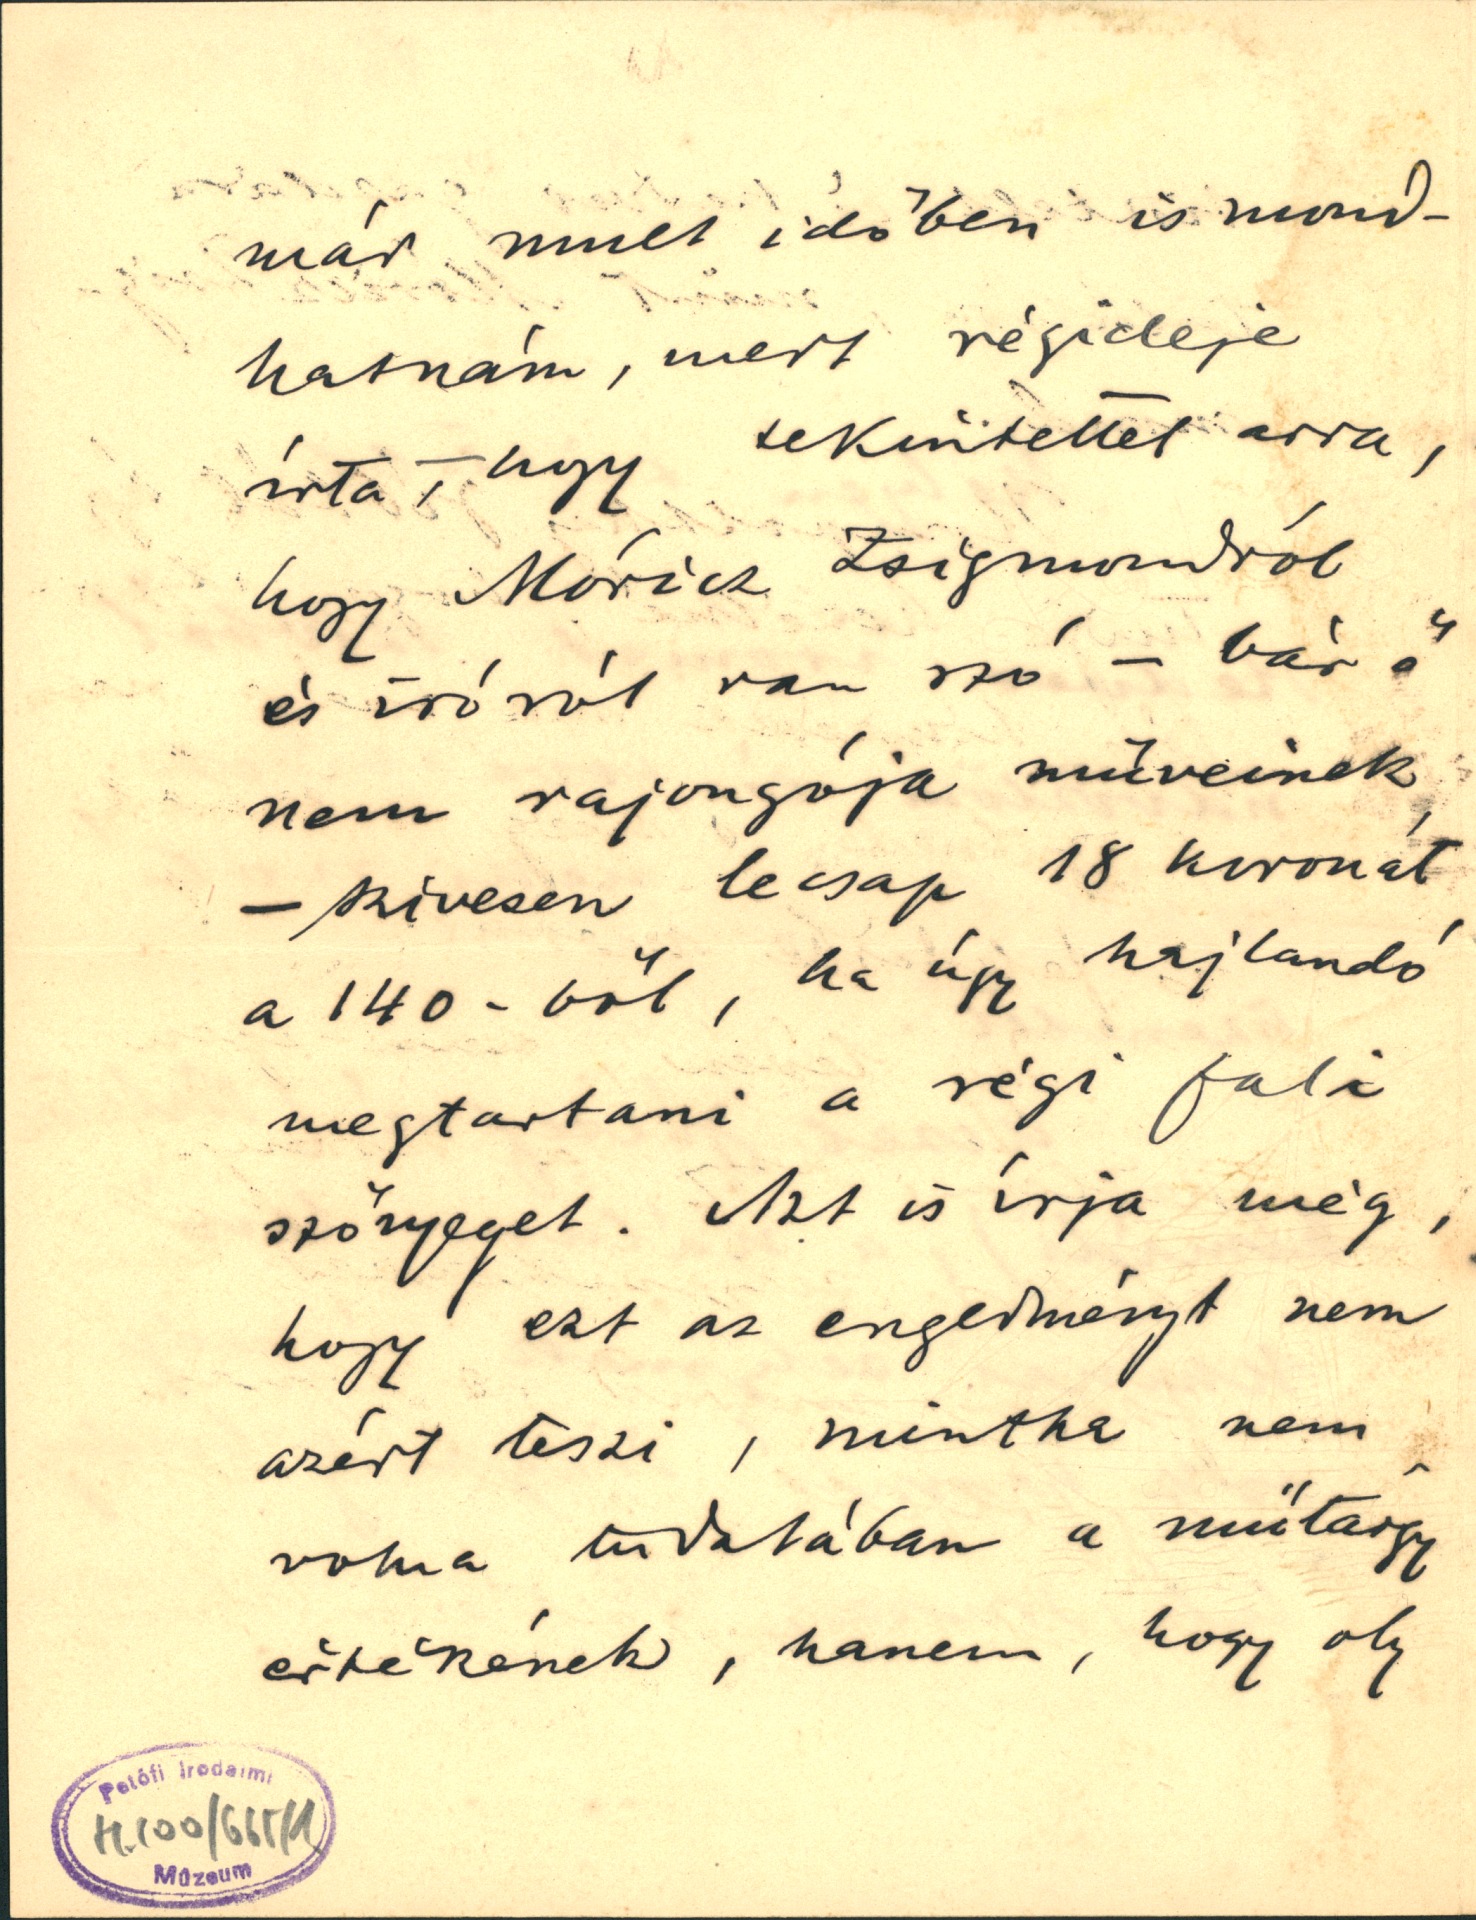 már mult időben is mond-
hatnám, mert régideje
írta, – hogy tekintettel arra,
hogy Móricz Zsigmondról
és íróról van szó – bár ő
nem rajongója műveinek,
– szivesen lecsap 18 koronát
a 140-ből, ha úgy hajlandó
megtartani a régi fali
szőnyeget. Azt is írja még,
hogy ezt az engedményt nem
azért teszi, mintha nem
volna tudatában a műtárgy
értékének, hanem, hogy oly
Petőfi Irodalmi
M.100/665/1
Múzeum